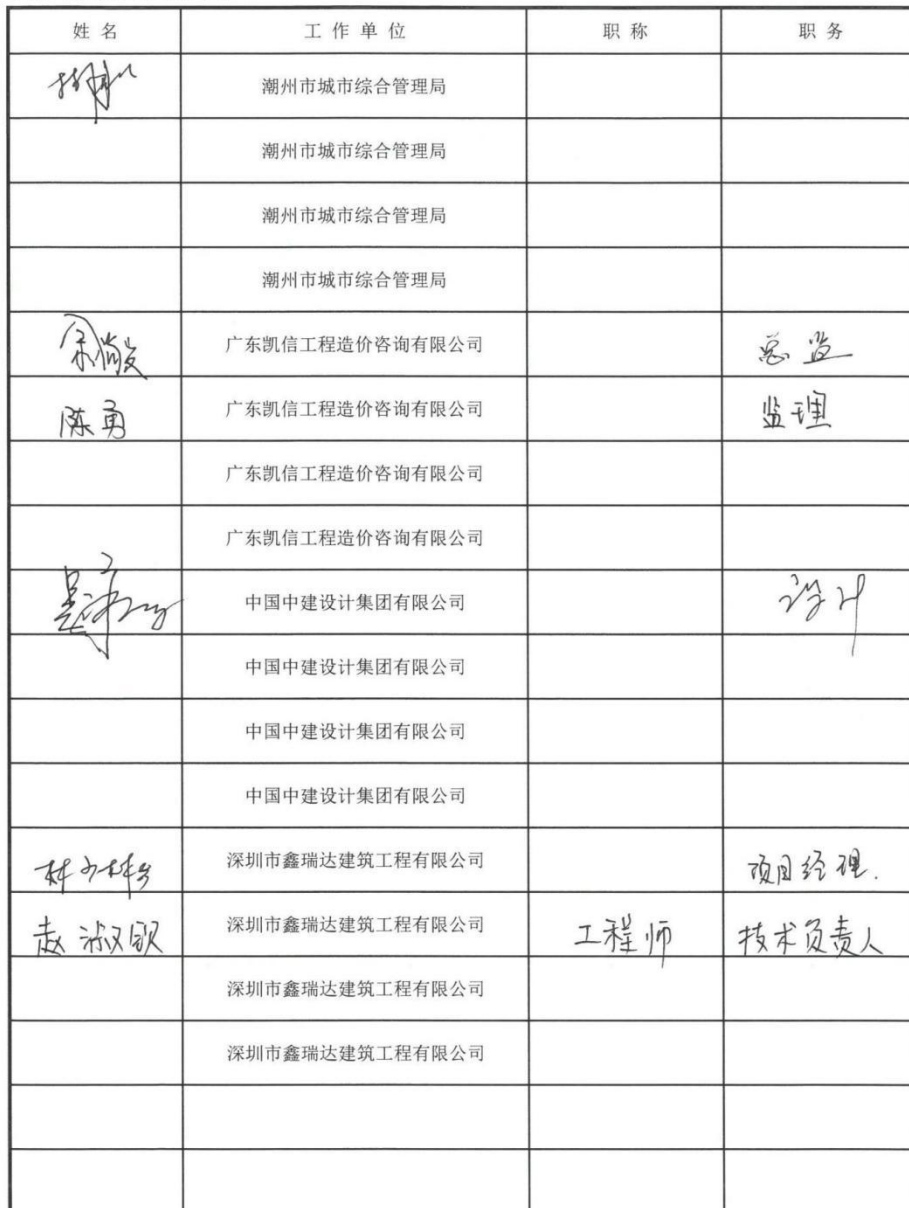 姓 名 工 作 单 位 职 称 职 务
潮州市城市综合管理局
潮州市城市综合管理局
潮州市城市综合管理局
潮州市城市综合管理局
广东凯信工程造价咨询有限公司 总监
陈勇 广东凯信工程造价咨询有限公司 监理
广东凯信工程造价咨询有限公司
广东凯信工程造价咨询有限公司
中国中建设计集团有限公司 设计
中国中建设计集团有限公司
中国中建设计集团有限公司
中国中建设计集团有限公司
深圳市鑫瑞达建筑工程有限公司 项目经理.
赵淑 深圳市鑫瑞达建筑工程有限公司 工程师 技术负责人
深圳市鑫瑞达建筑工程有限公司
深圳市鑫瑞达建筑工程有限公司